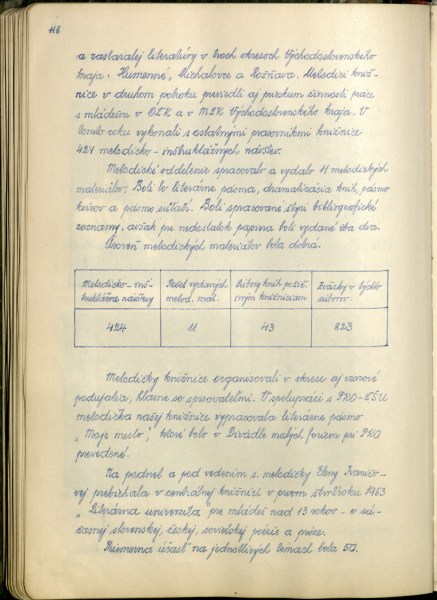 116
a zastaralej literatúry v troch okresoch Východoslovenského
kraja: Humenné, Michalovce a Rožňava. Metodici kniž-
nice v druhom polroku previedli aj prieskum činnosti práce
s mládežou v OĽK a v MĽK Východoslovenského kraja. V
tomto roku vykonali s ostatnými pracovníkmi knižnice
424 metodicko - inštruktážnych návštev.
Metodické oddelenie spracovalo a vydalo 11 metodických
materiálov: Boli to literárne pásma, dramatizácia kníh, pásmo
kvízov a pásmo súťaží. Boli spracované štyri bibliografické
zoznamy, avšak pre nedostatok papiera boli vydané iba dva.
Úroveň metodických materiálov bola dobrá.
Metodicko - inš-
truktážne návštevy
Počet vydaných
metod. mat.
Súbory kníh požič.
iným knižniciam
Zväzky v týchto
súborov.
424
11
43
823
Metodičky knižnice organizovali v okrese aj vzorové
podujatia, hlavne so spisovateľmi. V spolupráci s PKO - ĽŠU
metodička našej knižnice vypracovala literárne pásmo
„Moje mesto", ktoré bolo v Divadle malých foriem pri PKO
prevedené.
Na podnet a pod vedením s. metodičky Eleny
prebiehala v centrálnej knižnici v prvom štvrťroku 1963
„Literárna univerzita pre mládež nad 13 rokov - v sú-
časnej slovenskej, českej, sovietskej poézie a próze.
Priemerná účasť na jednotlivých témach bola 50.